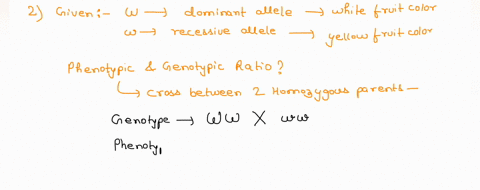 2) Given:- W → dominant allele → white fruit color
w → recessive allele → yellow fruit color
Phenotypic & Genotypic Ratio?
↳ Cross between 2 Homozygous parents -
Genotype → WW X ww
Phenoty